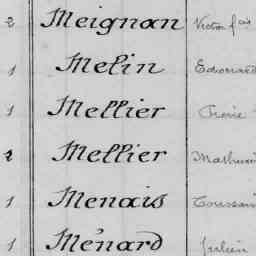 2 Meignan Victor fçois
1 Melin Edouard
1 Mellier Pierre
2 Mellier Mathurin
1 Menais Toussaint
1 Ménard Julien